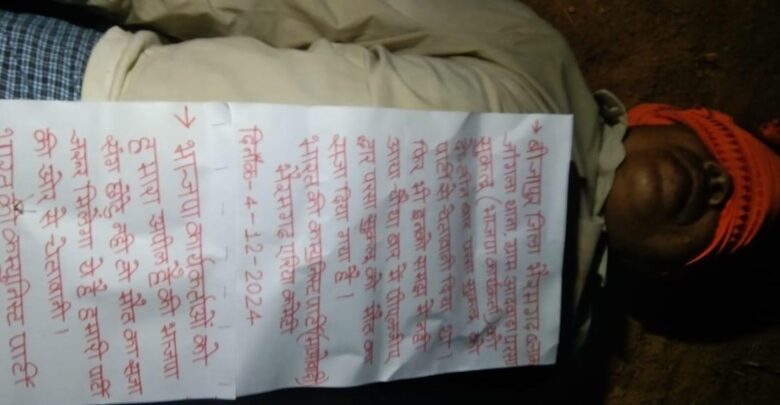 → बीजापुर जिला भैरमगढ़ ब्लाक
जांगला थाना, ग्राम परसा
सुकलू (भाजपा कार्यकर्ता) को
सुकलू को
पार्टी से चेतावनी दिया था।
फिर भी इनको समझ में नहीं
आया
बार परसा सुकलू को मौत का
सजा दिया गया है।
भारत की कम्युनिस्ट पार्टी (माओवादी)
भैरमगढ़ एरिया कमेटी
दिनांक- 4-12-2024
→ भाजपा कार्यकर्ताओं को
हमारा अपील है की भाजपा
नहीं तो मौत का सजा
जरूर मिलेगा ये है हमारी पार्टी
की ओर से चेतावनी।
भारत का कम्युनिस्ट पार्टी